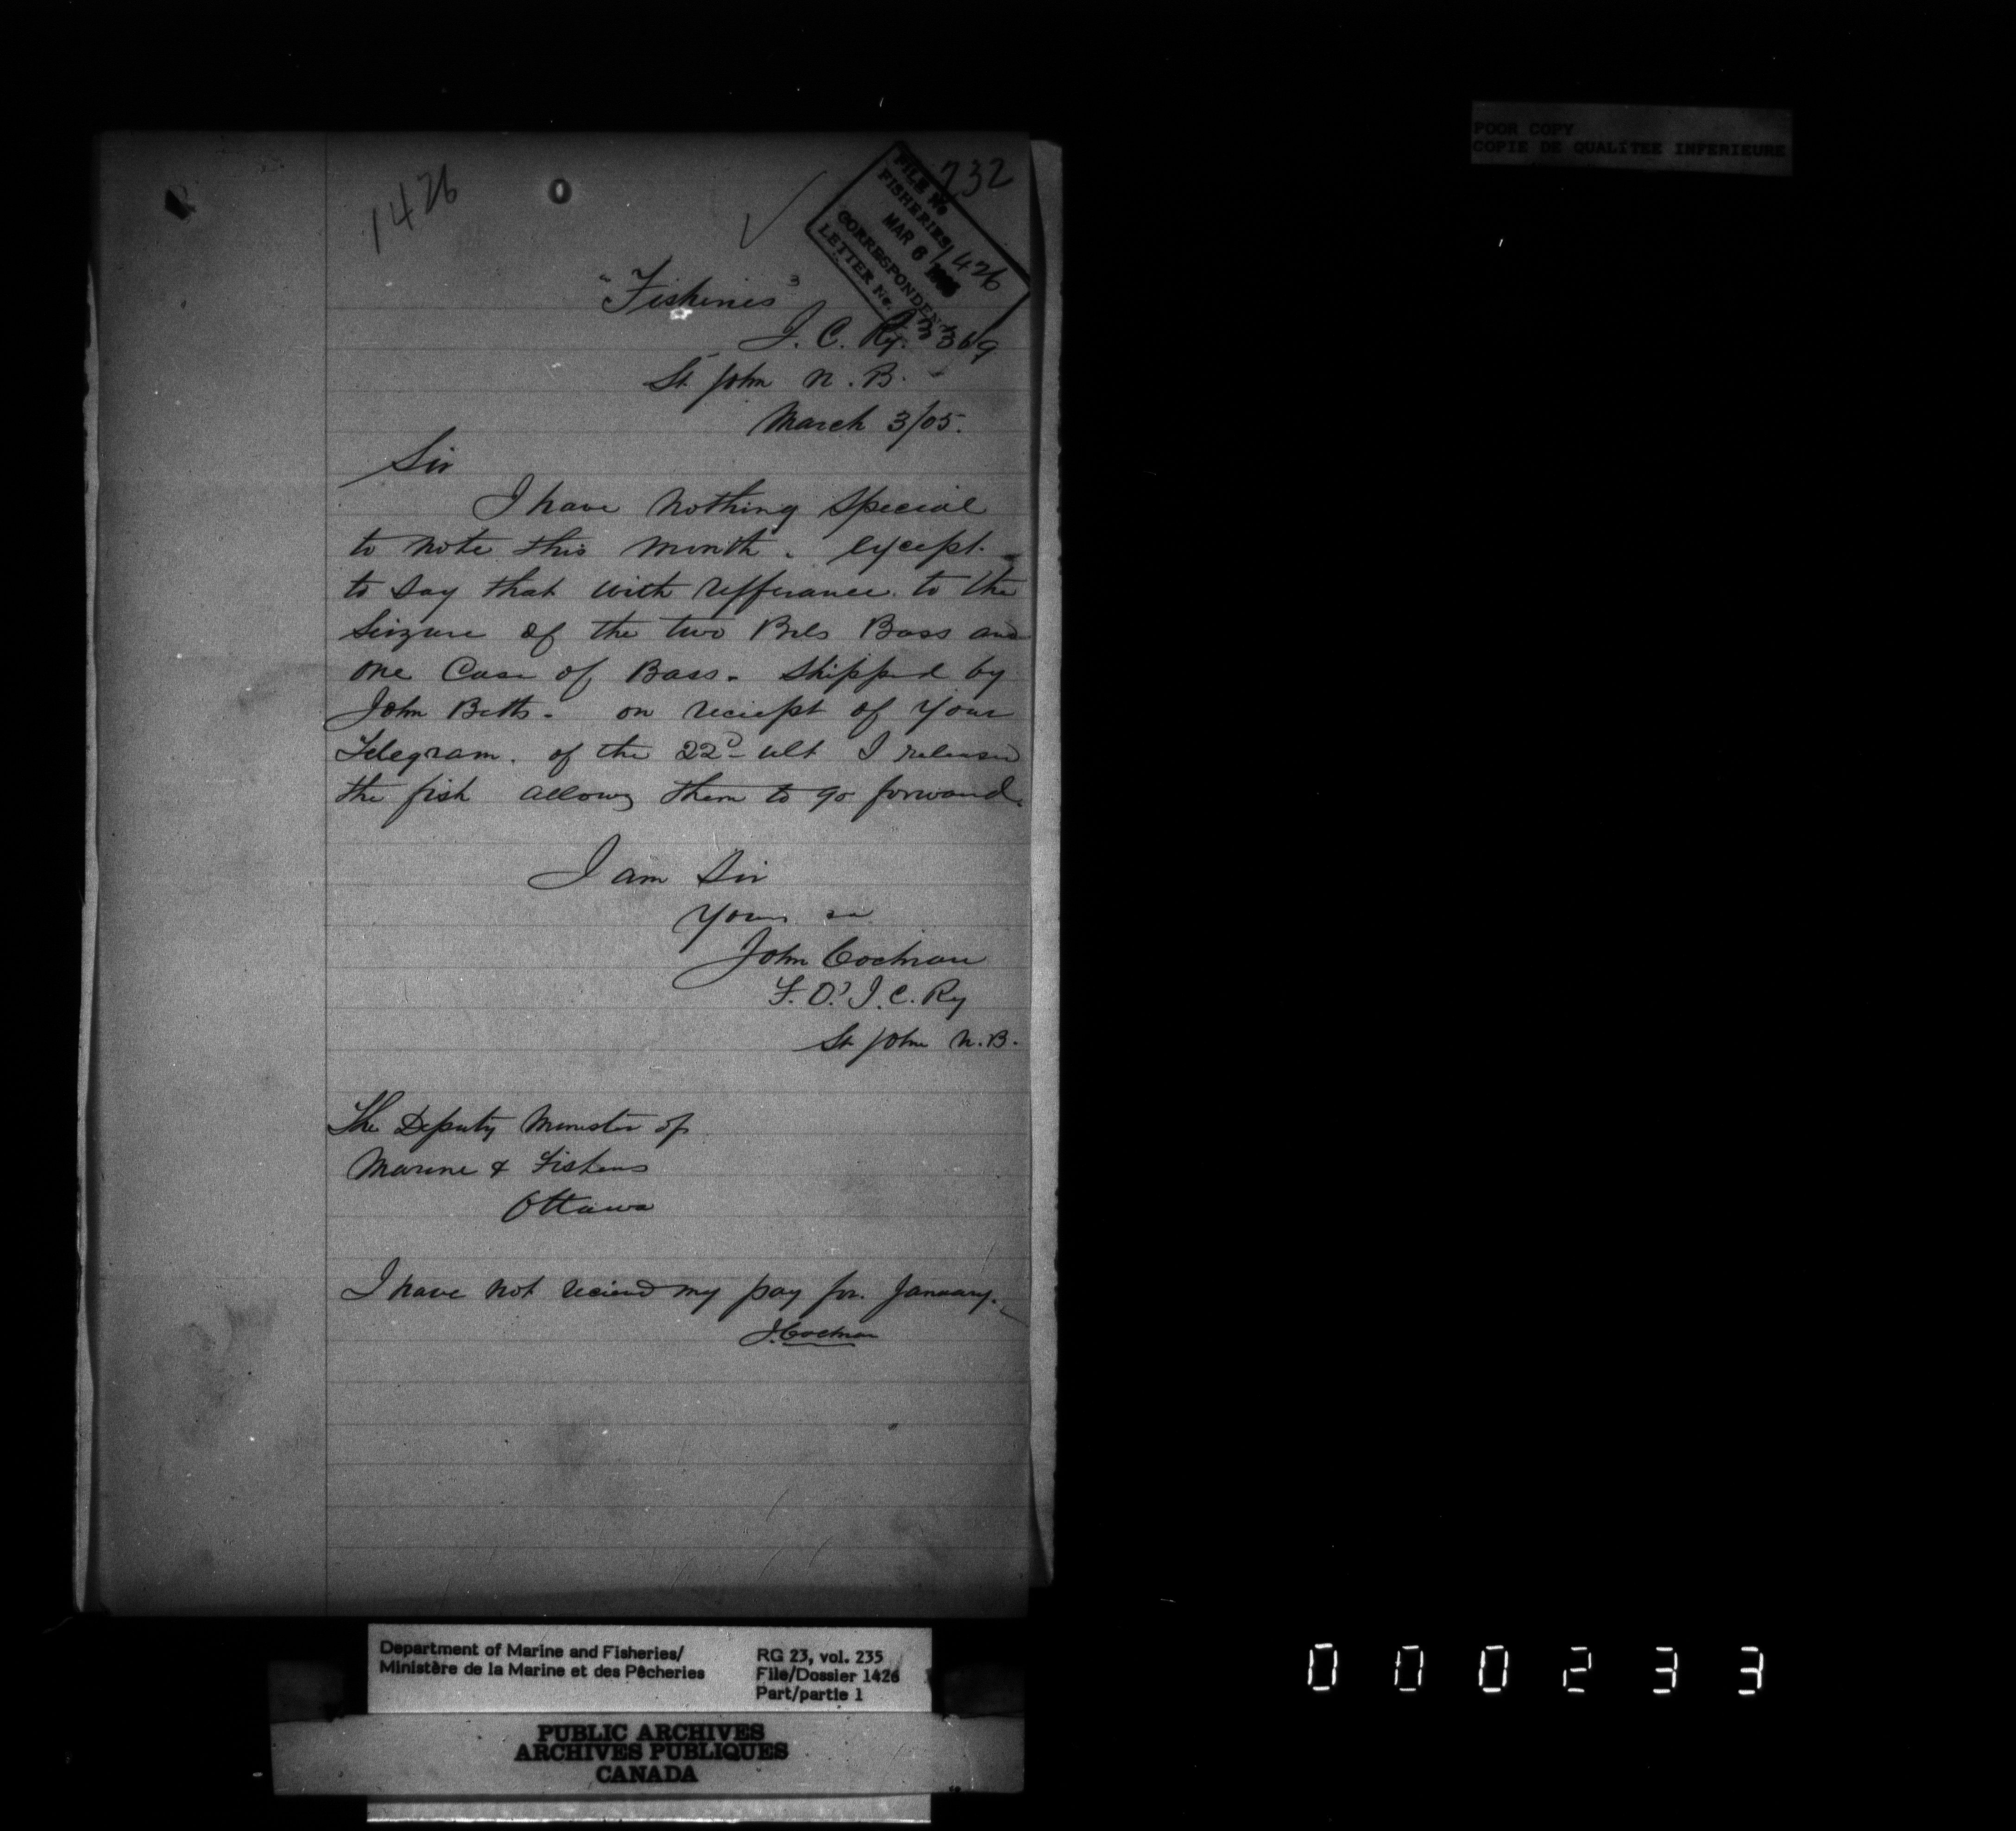 POOR COPY
COPIE DE QUALITEE INFERIEURE
1426
232
FILE No
FISHERIES 1426
MAR 6 1905
CORRESPONDENCE
LETTER No. 3369
"Fisheries"
I. C. Ry.
St. John N. B.
March 3/05.
Sir
I have nothing special
to note this month. except
to say that with refferance to the
Seizure of the two Brls Bass and
one Case of Bass. Shipped by
John Betts. on reciept of your
Telegram. of the 22d ult I released
the fish allowg them to go forward.
I am Sir
Yours
John Cochran
F. O. I. C. Ry
St John N. B.
The Deputy Minister of
Marine & Fisheries
Ottawa
I have not recieved my pay for January.
J. Cochran
Department of Marine and Fisheries/
Ministère de la Marine et des Pêcheries
RG 23, vol. 235
File/Dossier 1426
Part/partie 1
PUBLIC ARCHIVES
ARCHIVES PUBLIQUES
CANADA
000233